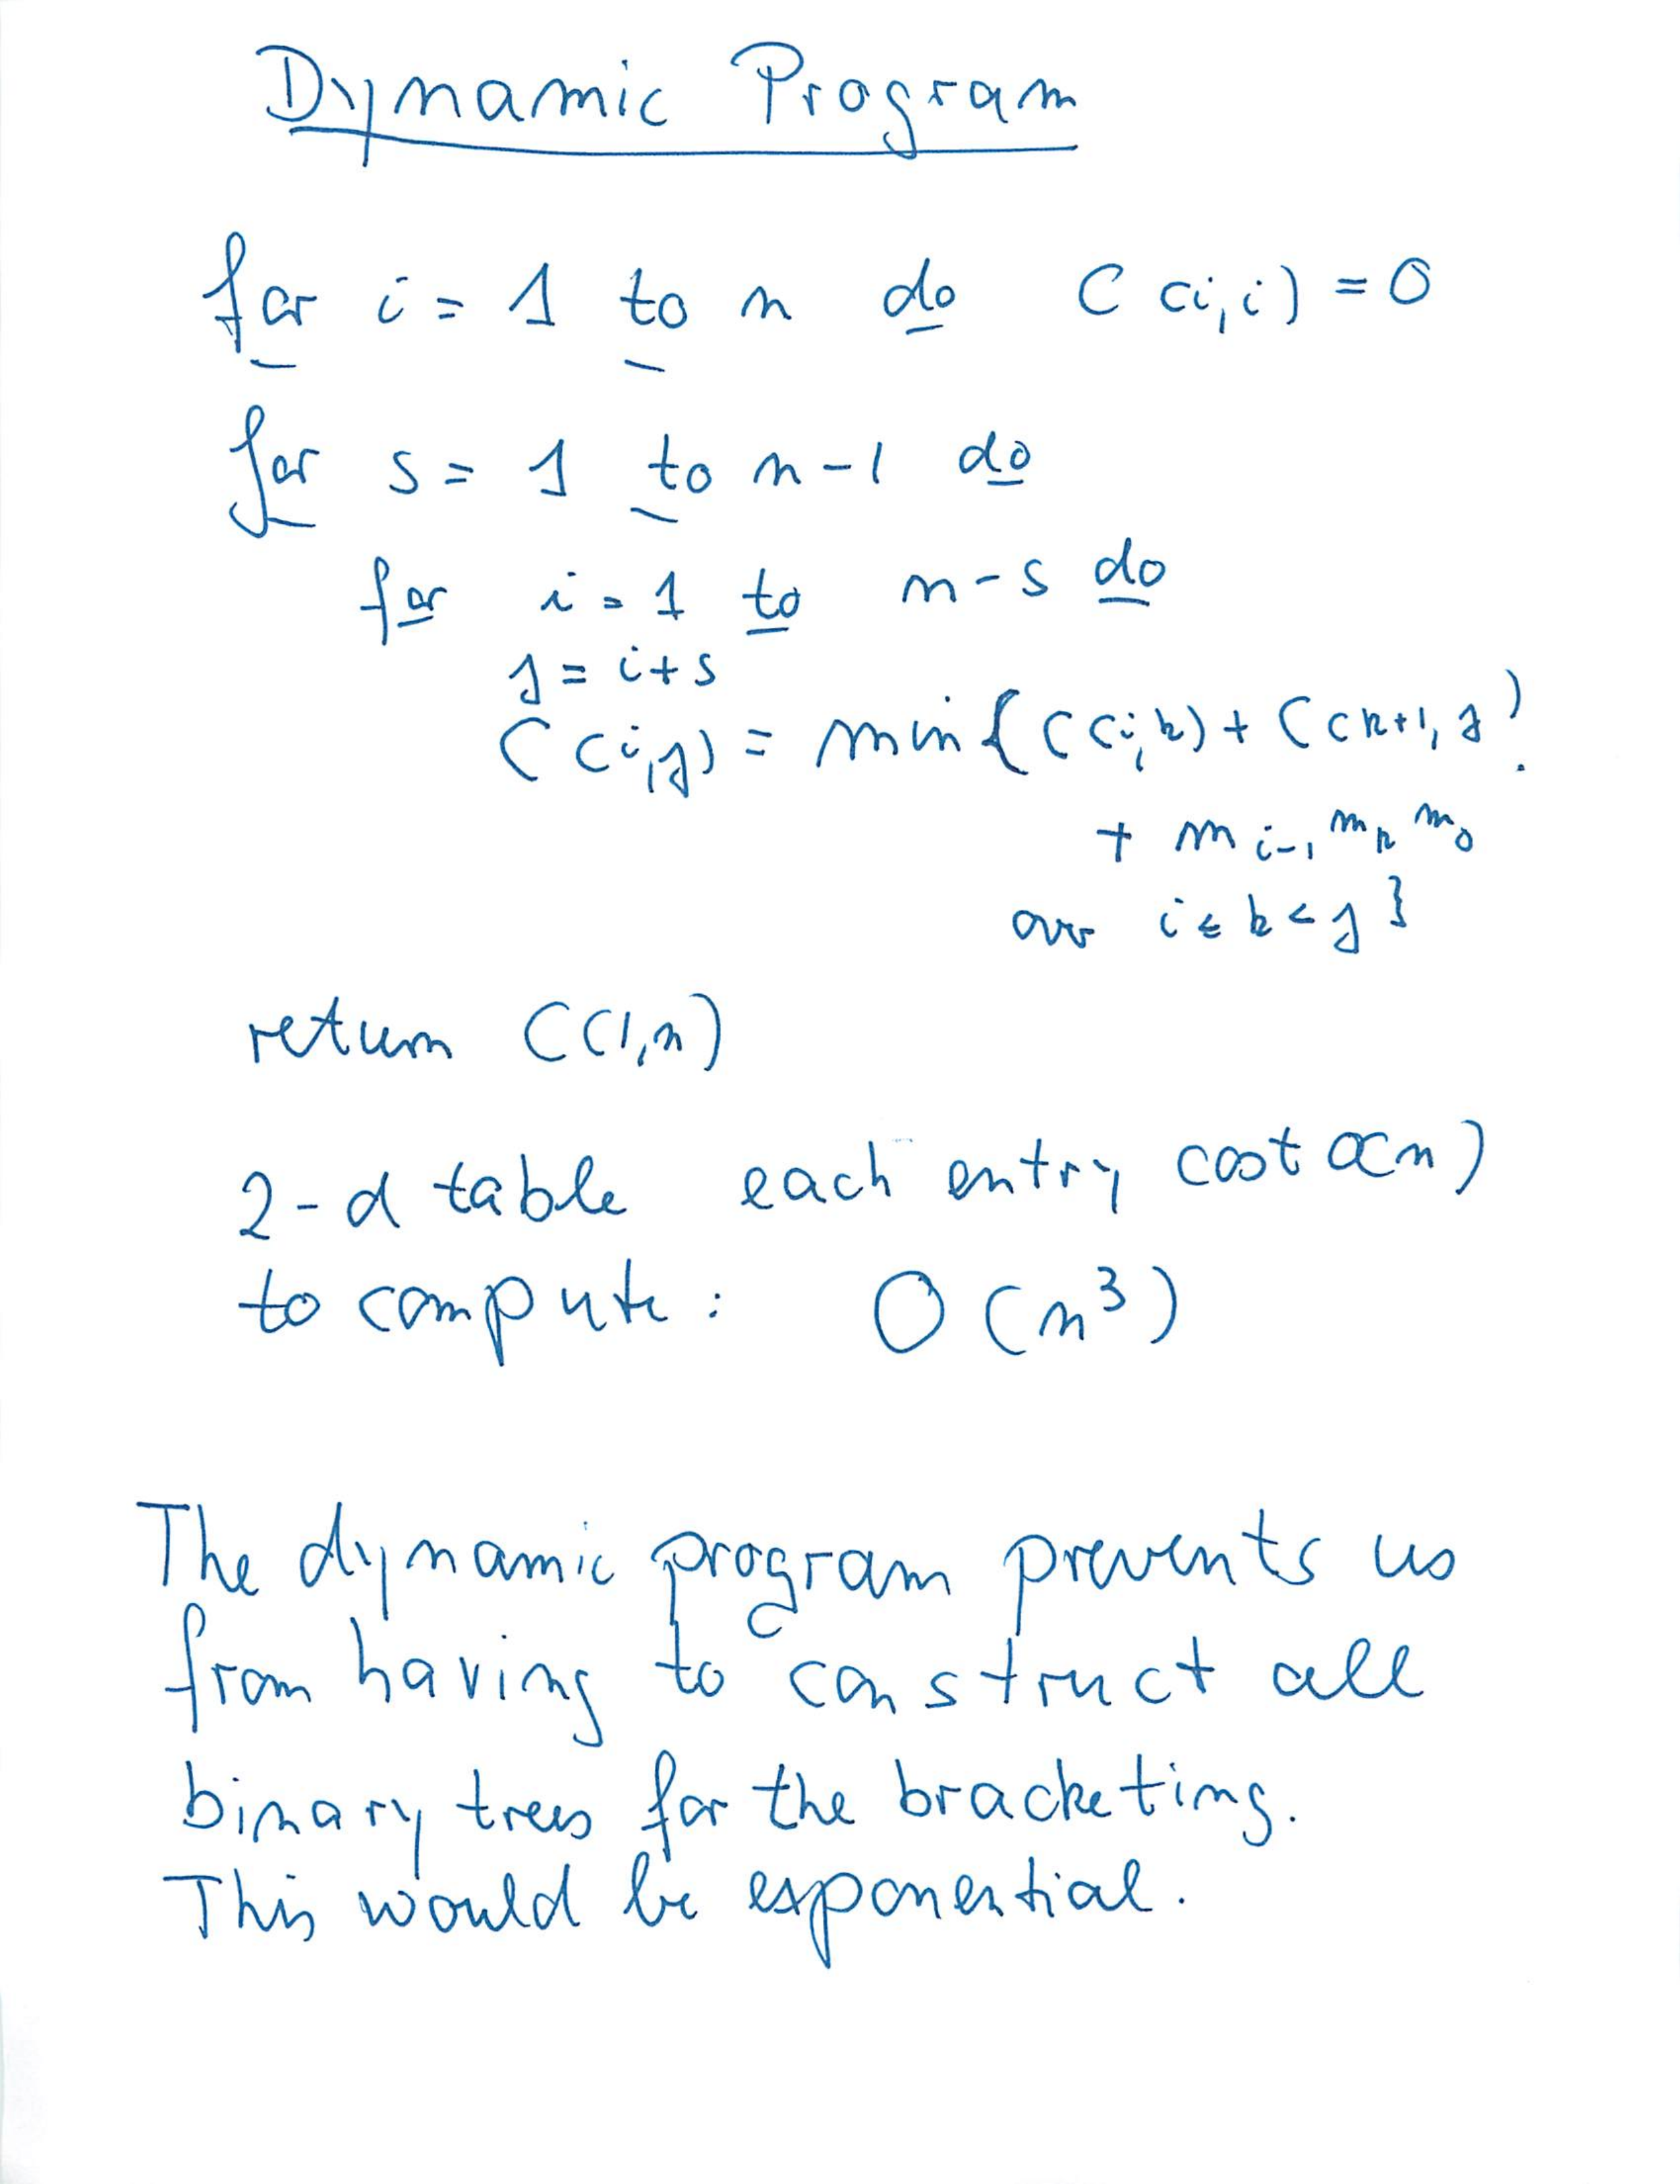 Dynamic Program
for i = 1 to n do C(i,i) = 0
for s = 1 to n-1 do
for i = 1 to n-s do
j = i+s
C(i,j) = min{C(i,k) + C(k+1, j)
+ m i-1 m k m j
over i ≤ k < j }
return C(1,n)
2-d table each entry cost O(n)
to compute : O(n³)
The dynamic program prevents us
from having to construct all
binary trees for the bracketing.
This would be exponential.